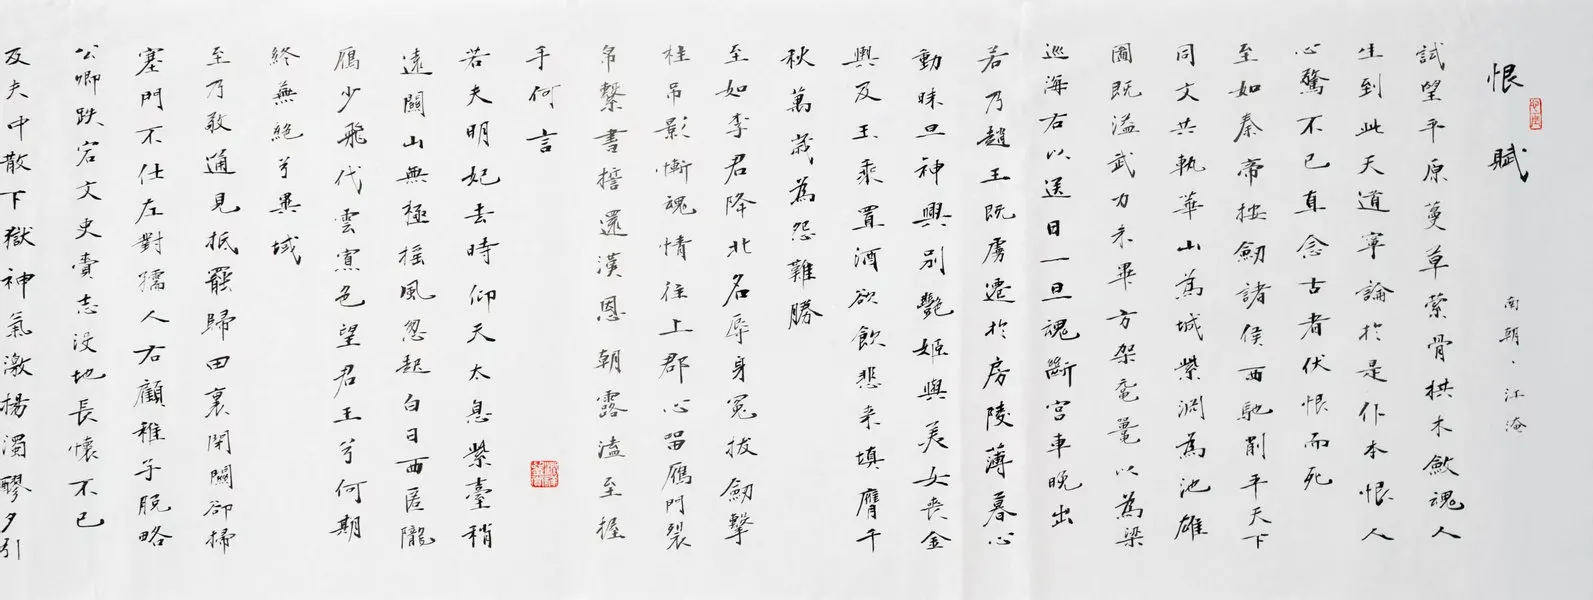 恨賦
南朝·江淹
試望平原蔓草縈骨拱木斂魂人
生到此天道寧論於是仆本恨人
心驚不已直念古者伏恨而死
至如秦帝按劍諸侯西馳削平天下
同文共軌華山為城紫淵為池雄
圖既溢武力未畢方架黿鼉以為梁
巡海右以送日一旦魂斷宮車晚出
若乃趙王既虜遷於房陵薄暮心
動昧旦神興別艷姬與美女喪金
輿及玉乘置酒欲飲悲來填膺千
秋萬歲為怨難勝
至如李君降北名辱身冤拔劍擊
柱吊影慚魂情往上郡心留雁門裂
帛繫書誓還漢恩朝露溘至握
手何言
若夫明妃去時仰天太息紫臺稍
遠關山無極搖風忽起白日西匿隴
雁少飛代雲寡色望君王兮何期
終蕪絕兮異域
至乃敬通見抵罷歸田裏閉關卻掃
塞門不仕左對孺人右顧稚子脫略
公卿跌宕文史賫志沒地長懷不已
及夫中散下獄神氣激揚濁醪夕引